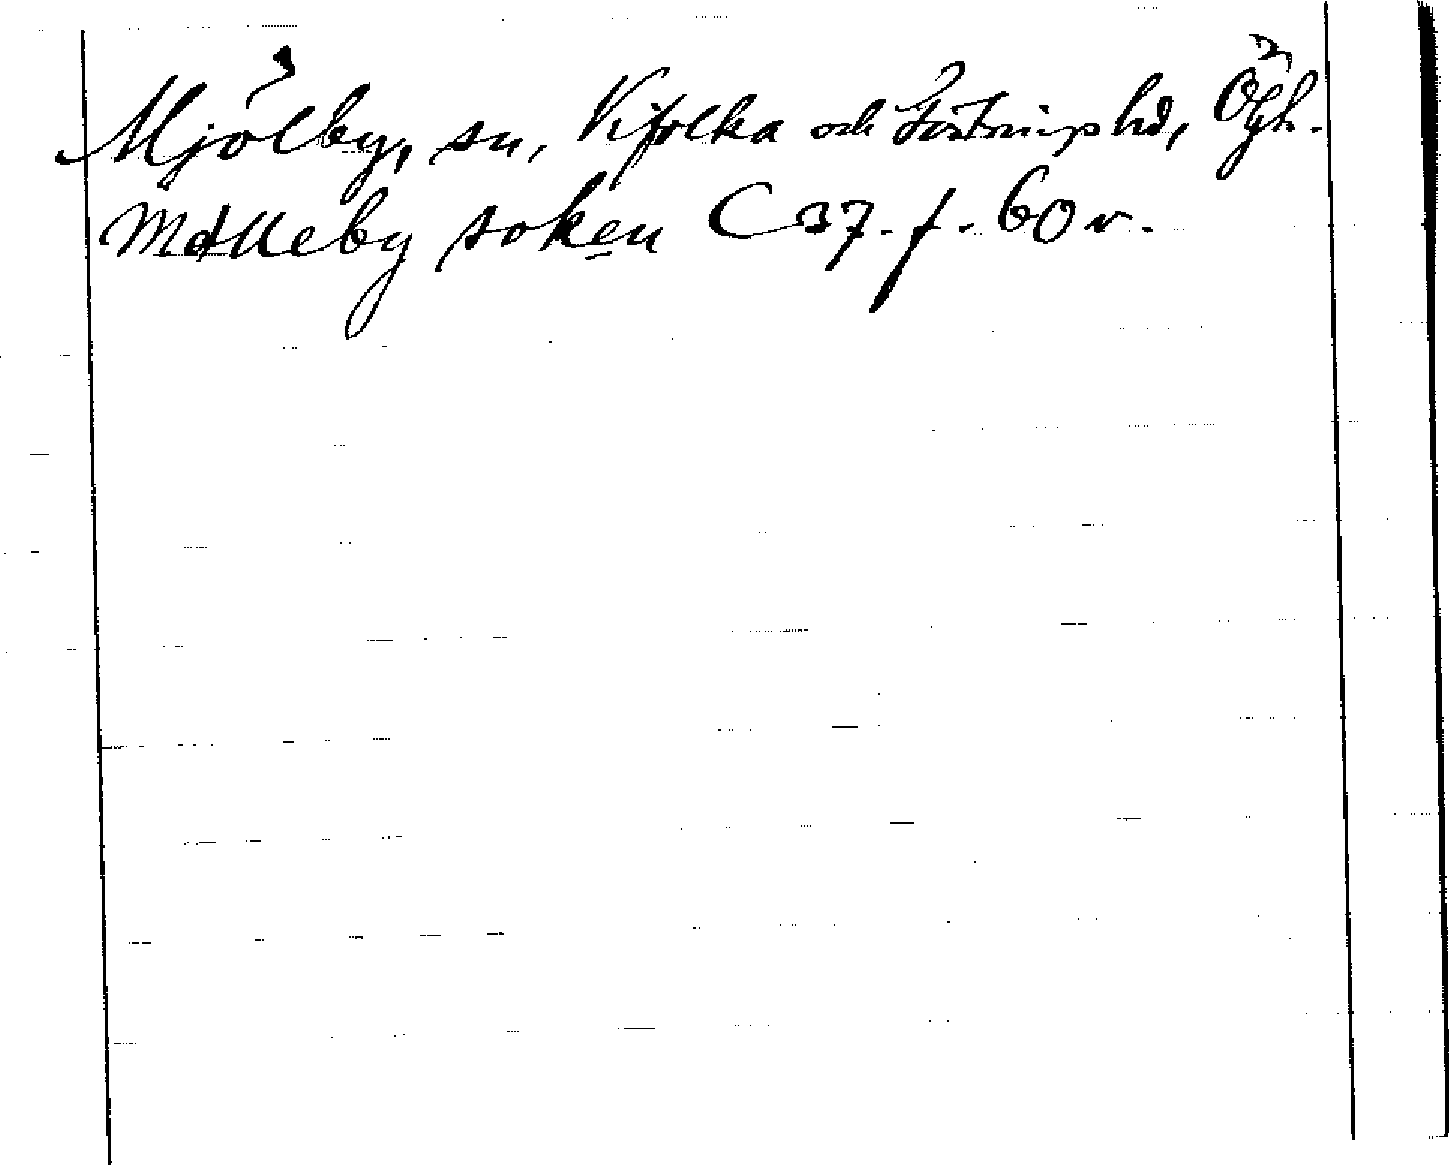 Mjölby, sn, Vifolka och Göstrings hd, Ögh.
Mølleby soken C 37. f. 60 v.